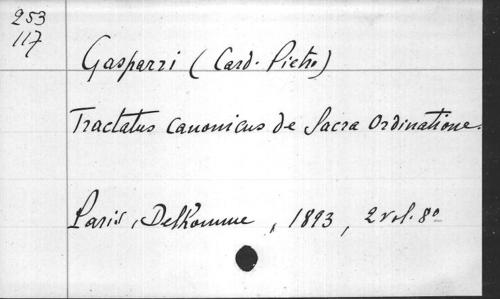 253
117
Gasparri (Card. Pietro)
Tractatus canonicus de Sacra Ordinatione.
Paris, Delhomme, 1893, 2 vol. 8º